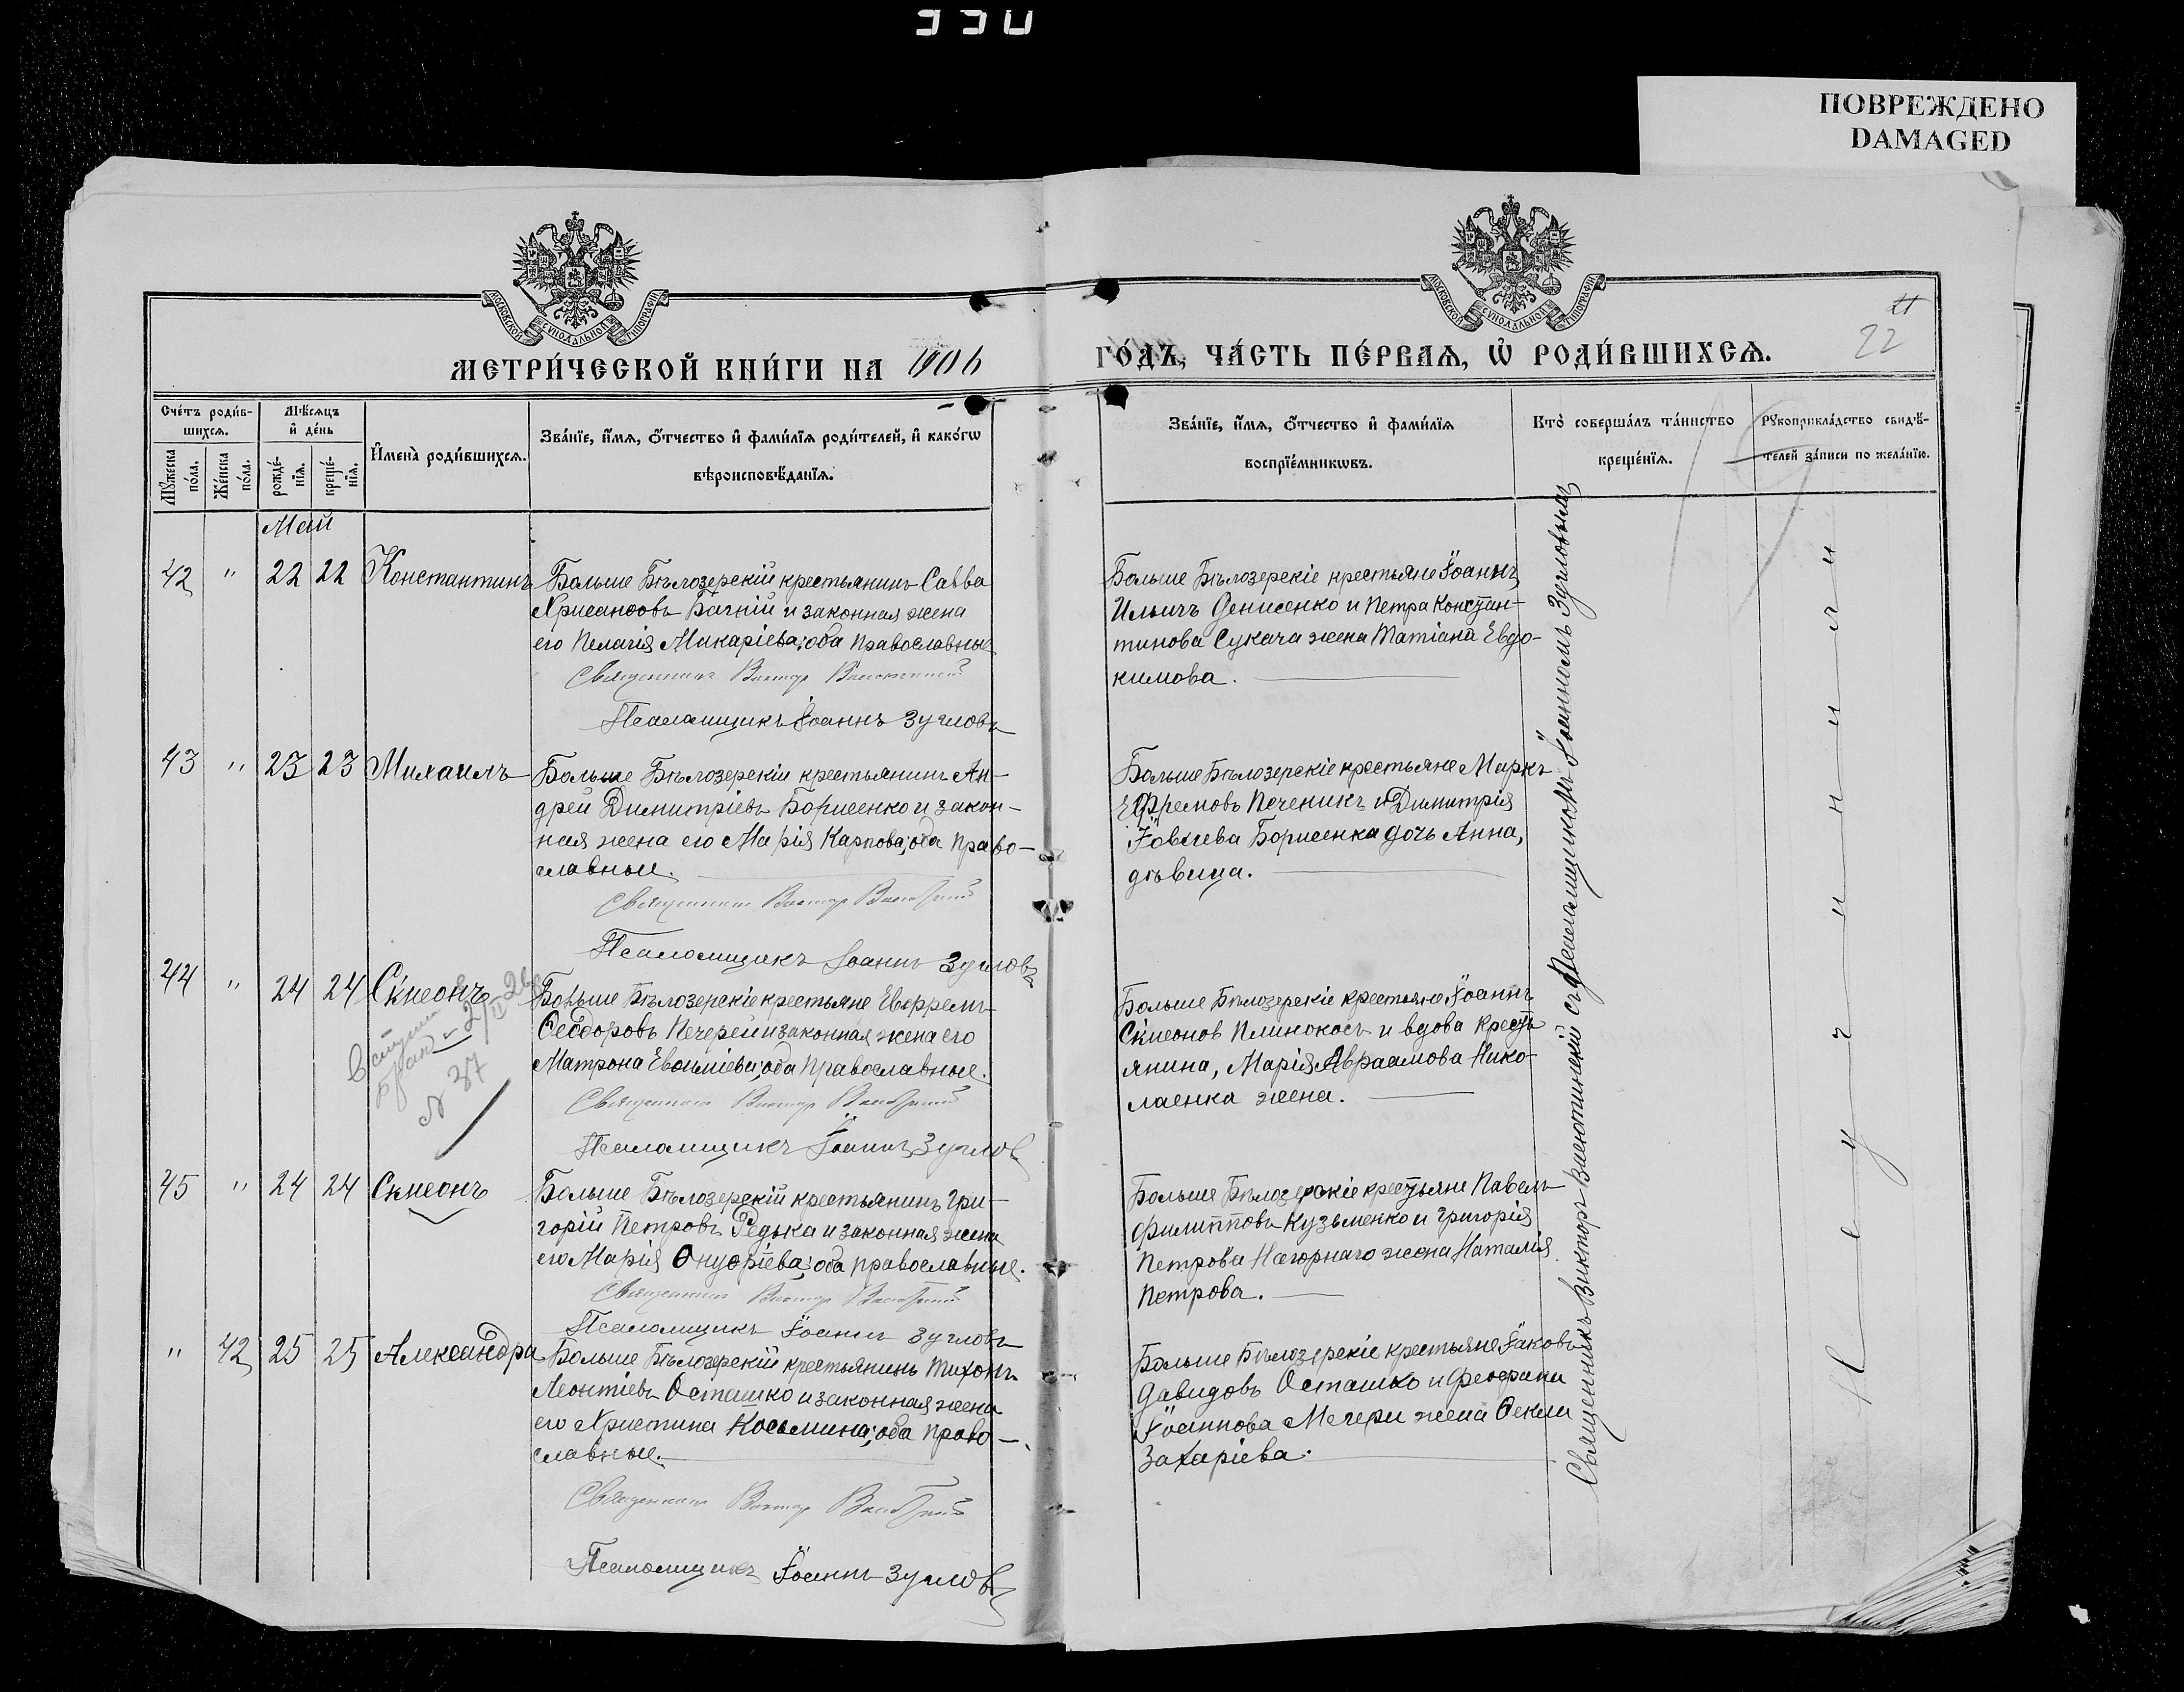 330
ПОВРЕЖДЕНО
DAMAGED
МОСКОВСКОЙ СѴНОДАЛЬНОЙ ТИПОГРАФІИ
МОСКОВСКОЙ СѴНОДАЛЬНОЙ ТИПОГРАФІИ
МЕТРИ́ЧЕСКОЙ КНИ́ГИ НА 1906 ГО́ДЪ, ЧА́СТЬ ПЕ́РВАЯ, Ѡ҆ РОДИ́ВШИХСЯ.
21
22
Сче́тъ роди́в-
шихся.
Мѣ́сяцъ
и҆ де́нь
Мꙋ́жеска по́ла.
Же́нска по́ла.
рожде́-
нїя.
креще́-
нїя.
И҆мена̀ роди́вшихся.
Зва́нїе, и҆́мя, ѻ҆́тчество и҆ фами́лїя роди́телей, и҆ како́гѡ
вѣроисповѣ́данїя.
Зва́нїе, и҆́мя, ѻ҆́тчество и҆ фами́лїя
воспрїе́мникѡвъ.
Кто̀ соверша́лъ та́инство
креще́нїя.
Рꙋкоприкла́дство свидѣ́-
телей за́писи по жела́нїю.
Май
42 " 22 22 Константинъ
Больше Бѣлозерскій крестьянинъ Савва
Хрисанѳовъ Бачній и законная жена
его Пелагія Макаріева; оба православные
Священникъ Викторъ
Псаломщикъ Іоаннъ Зугловъ
Больше Бѣлозерскіе крестьяне Іоаннъ
Ильичъ Денисенко и Петра Констан-
тинова Сукача жена Татіана Евдо-
кимова.
43 " 23 23 Михаилъ
Больше Бѣлозерскій крестьянинъ Ан-
дрей Димитріевъ Борисенко и закон-
ная жена его Марія Карпова; оба право-
славные.
Священникъ Викторъ
Псаломщикъ Іоаннъ Зугловъ
Больше Бѣлозерскіе крестьяне Маркъ
Ефремовъ Печеникъ и Димитрія
Іовлева Борисенка дочь Анна,
дѣвица.
44 " 24 24 Сѵмеонъ
N 37
Больше Бѣлозерскіе крестьяне Евфремъ
Ѳеодоровъ Печерей и законная жена его
Матрона Евѳиміева; оба православные.
Священникъ Викторъ
Псаломщикъ Іоаннъ Зуглов
Больше Бѣлозерскіе крестьяне Іоаннъ
Сѵмеонов Плинокосъ и вдова кресть
янина, Марія Авраамова Нико-
лаенка жена.
45 " 24 24 Сѵмеонъ
Больше Бѣлозерскій крестьянинъ Гри-
горій Петровъ Редька и законная жена
его Марія Онуфріева; оба православные.
Священникъ Викторъ
Псаломщикъ Іоаннъ Зугловъ
Больше Бѣлозерскіе крестьяне Павелъ
Филипповъ Кузьменко и Григорія
Петрова Нагорнаго жена Наталія
Петрова.
" 42 25 25 Александра
Больше Бѣлозерскій крестьянинъ Тихонъ
Леонтіевъ Осташко и законная жена
его Христина Косьмина; оба право-
славные.
Священникъ Викторъ
Псаломщикъ Іоаннъ Зуглов
Больше Бѣлозерскіе крестьяне Іаковъ
Давидовъ Осташко и Феофана
Іоаннова Мечери жена Ѳекла
Захаріева.
Священникъ Викторъ съ Псаломщикомъ Іоанномъ Зугловымъ
Не учинили